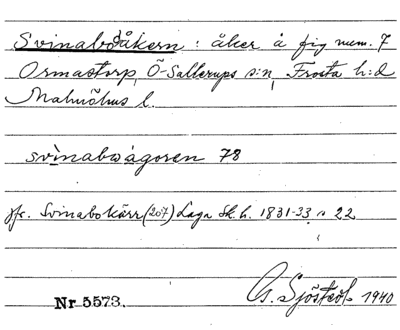 Svinaboåkern: åker å fig num. 7
Ormastorp, Ö-Sallerups s:n, Frosta h:d
Malmöhus l.
svinabo ågoren 78
jfr. Svinabokärr (207) Laga Sk. h. 1831-33 s 22
Nr 5573.
G. Sjöstedt 1940